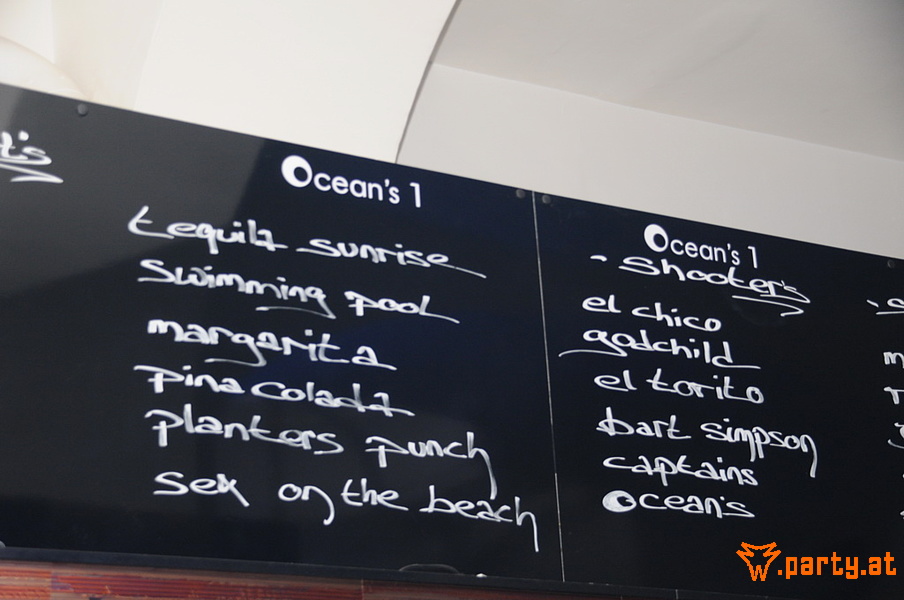 t's
Ocean's 1
tequila sunrise
Swimming pool
margarita
pina colada
planters punch
sex on the beach
Ocean's 1
- shooter's
el chico
godchild
el torito
bart simpson
captains
Ocean's
w.party.at